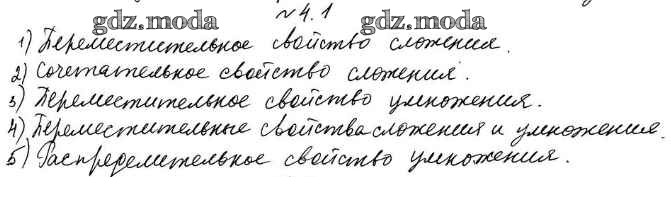 № 4.1
gdz.moda gdz.moda
1) Переместительное свойство сложения.
2) Сочетательное свойство сложения.
3) Переместительное свойство умножения.
4) Переместительные свойства сложения и умножения.
5) Распределительное свойство умножения.